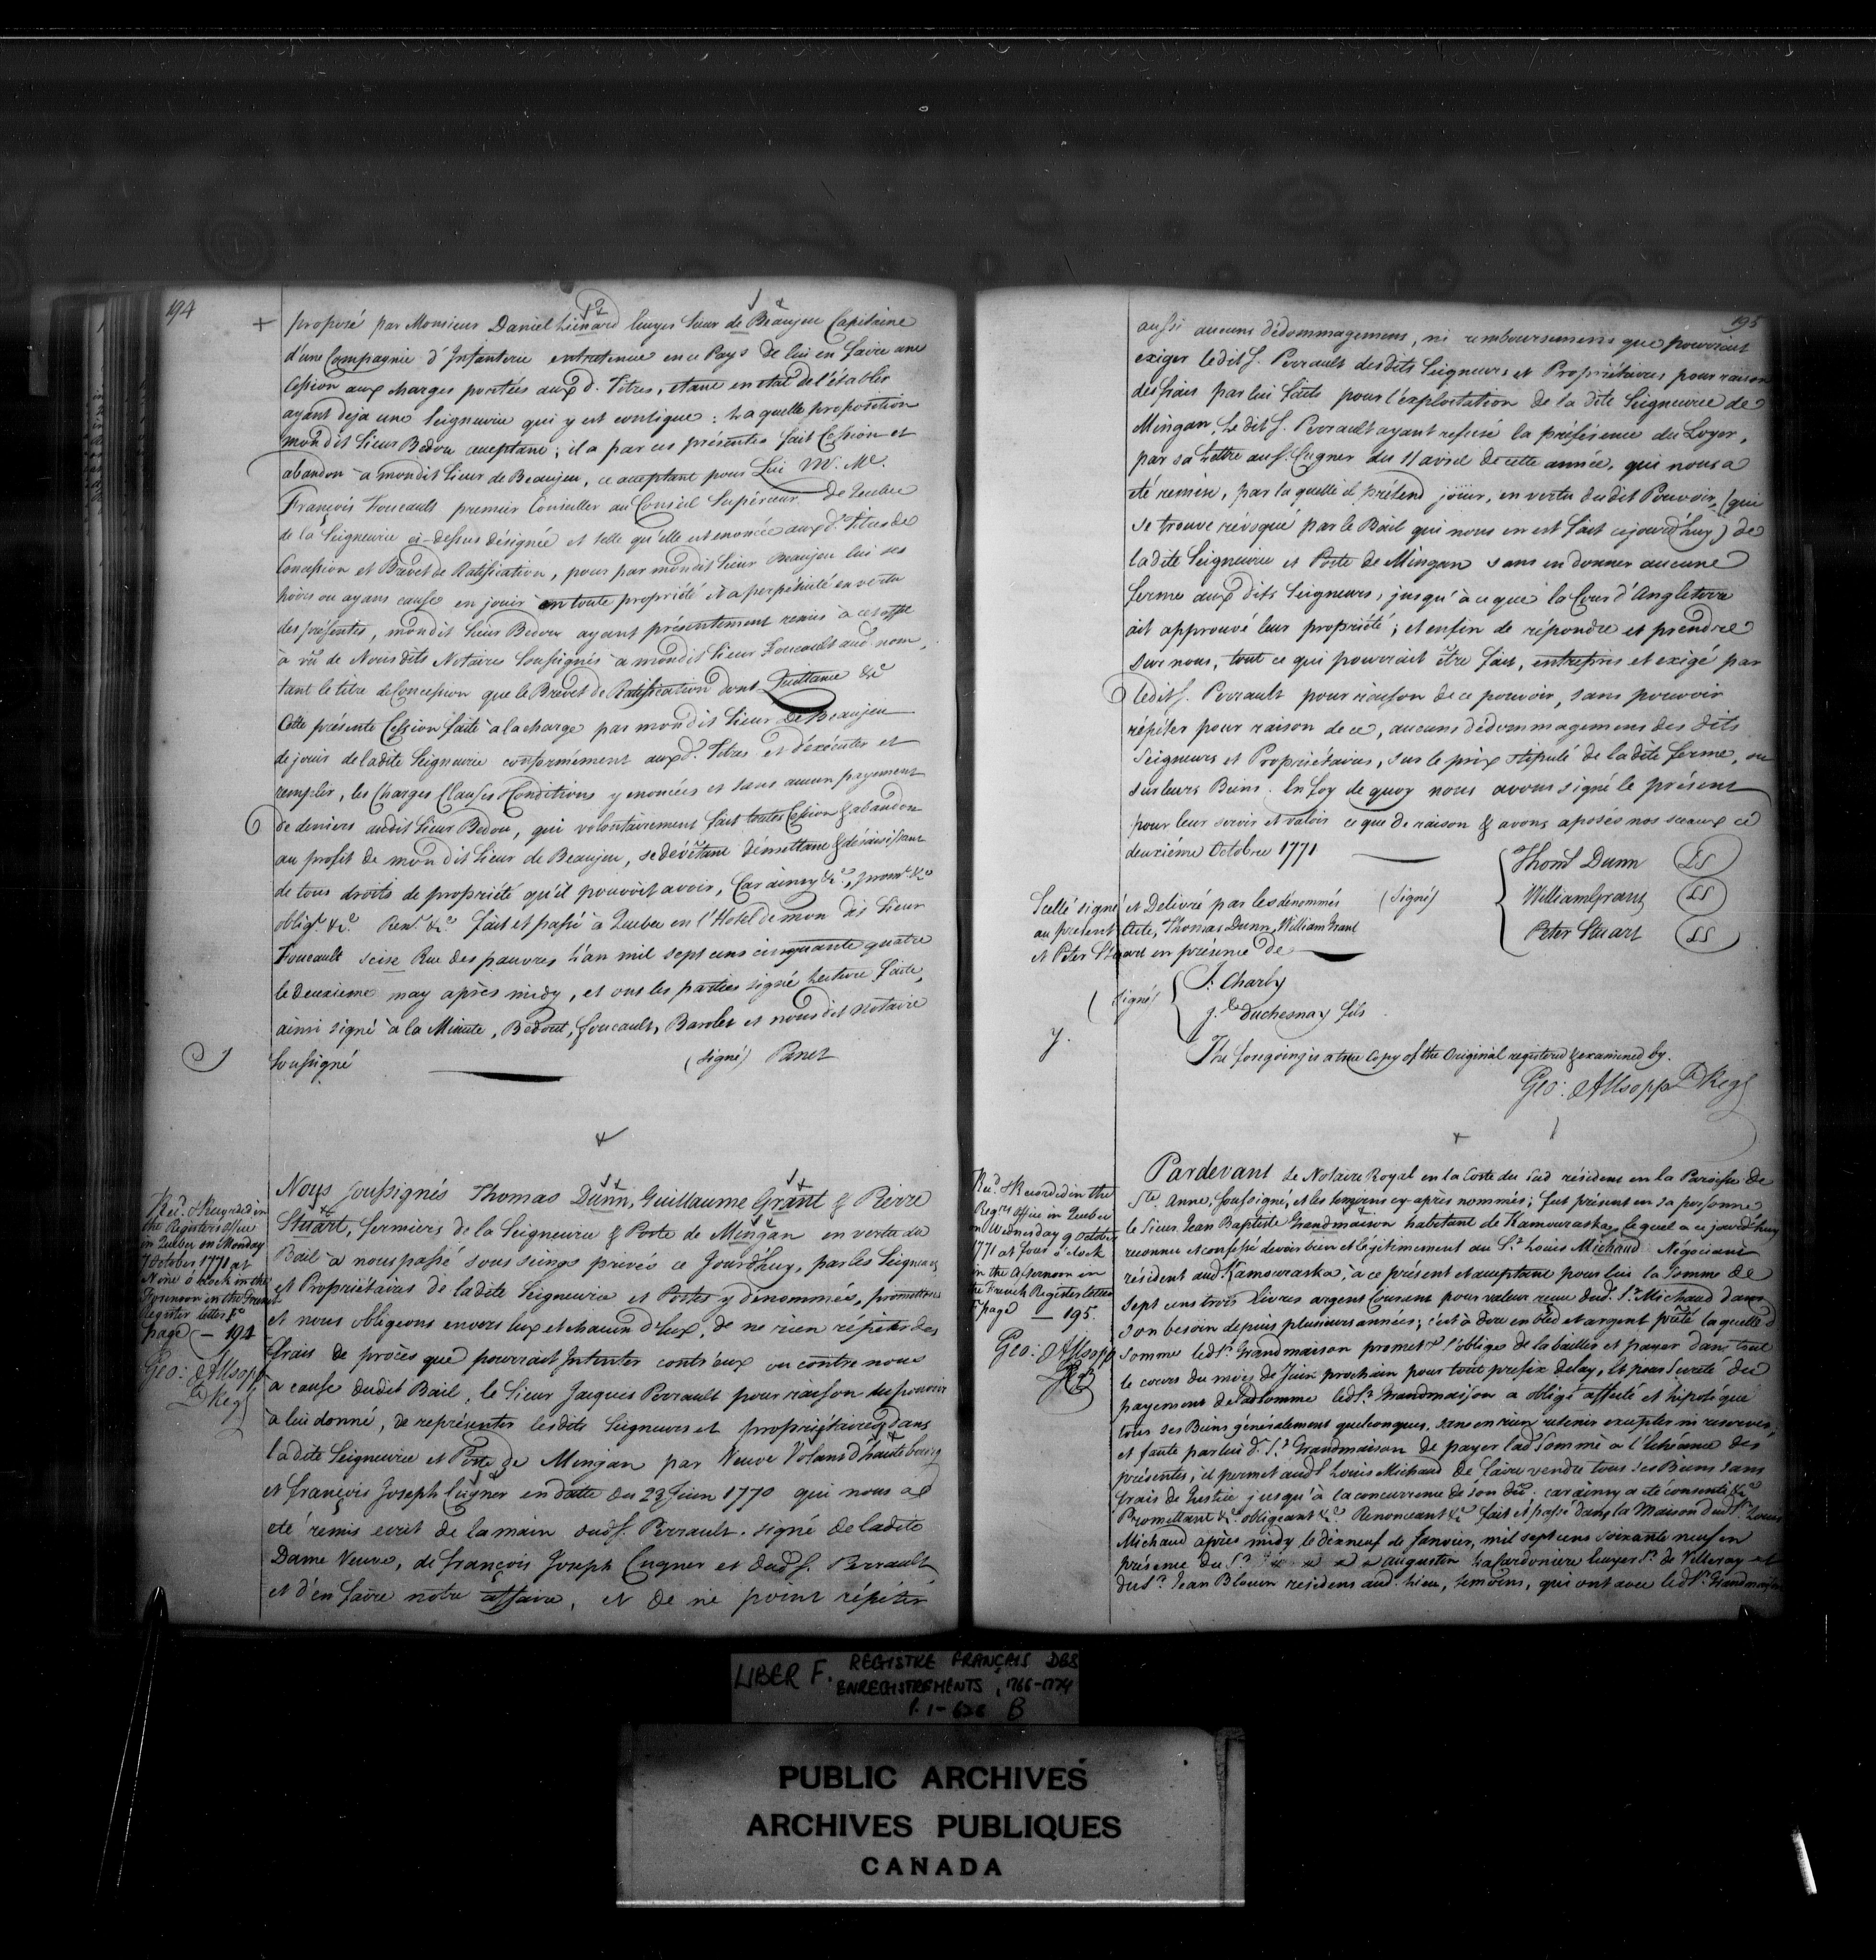 194
proposé par Monsieur Daniel Liénard Ecuyer Sieur de Beaujeu Capitaine
d'une Compagnie d'Infanterie entretenue en ce Pays de lui en faire une
Cession aux charges portées auxd. Titres, étant en état de l'établir
ayant deja une Seigneurie qui y est contigue : Laquelle proposition
mondit Sieur Bedou acceptant ; il a par ces présentes fait Cession et
abandon à mondit Sieur de Beaujeu, ce acceptant pour Lui M. Me.
François Foucault premier Conseiller au Conseil Supérieur de Quebec
de la Seigneurie ci-dessus désignée et telle qu'elle est enoncée auxd. Titres de
Concession et Brevet de Ratification, pour par mondit Sieur Beaujeu lui ses
hoirs ou ayans cause en jouir en toute propriété et a perpétuité en vertu
des présentes, mondit Sieur Bedou ayant présentement remis à cet effet
à vû de Nous dits Notaires Soussignés à mondit Sieur Foucault aud. nom,
tant le titre de Concession que le Brevet de Ratification dont Quittance &c
Cette présente Cession faite à la charge par mondit Sieur de Beaujeu
de jouir de ladite Seigneurie conformément auxd. Titres et d'exécuter et
remplir, les Charges Clauses & Conditions y énoncées et sans aucun payement
de deniers audit Sieur Bedou, qui volontairement fait toutes Cession & abandon
au profit de mondit Sieur de Beaujeu, se devêtant démettant & désaisissant
de tous droits de propriété qu'il pouvoit avoir, Car ainsy &c. promt. &c
oblig. &c. Ren. &c. fait et passé à Quebec en l'Hotel de mon dit Sieur
Foucault scise Rue des pauvres L'an mil sept cens cinquante quatre
le deuxieme may après midy, et ont les parties signé Lecture faite,
ainsi signé à la Minute, Bedout, foucault, Barolet et nous dit notaire
Soussigné (signé) Panet
Recd. & Recorded in
the Registers Office
in Quebec on Monday
7 October 1771 at
Nine o'Clock in the
Forenoon in the French
Register letter F.
page — 194
Geo: Allsopp
D Reg
Nous Soussignés Thomas Dunn, Guillaume Grant & Pierre
Stuart, fermiers de la Seigneurie & Poste de Mingan en vertu du
Bail à nous passé sous seings privés ce Jourd'huy, par les Seigneurs
et Propriétaires de ladite Seigneurie et Postes y dénommés, promettons
et nous obligeons envers Eux et chacun d'Eux, de ne rien répéter des
frais de procès que pourroit Intenter contr'eux ou contre nous
à cause dudit Bail, le Sieur Jacques Perrault pour raison du pouvoir
à lui donné, de représenter lesdits Seigneurs et propriétaires dans
ladite Seigneurie et Poste de Mingan par Veuve Volant d'hautebourg
et françois Joseph Cugnet en datte du 23 Juin 1770 qui nous a
eté remis ecrit de la main dud S. Perrault, signé de ladite
Dame Veuve, de françois Joseph Cugnet et dud S. Perrault
et d'en faire notre affaire, et de ne point répéter
195
aussi aucuns dédommagemens, ni remboursemens que pourroient
exiger ledit S. Perrault desdits Seigneurs et Propriétaires pour raison
des frais par lui faits pour l'exploitation de la dite Seigneurie de
Mingan, Le dit S. Perrault ayant refusé la préférence du Loyer,
par sa Lettre au S. Cugnet du 11 avril de cette année, qui nous a
eté remise, par laquelle il prétend joüir, en vertu dudit Pouvoir, (qui
se trouve révoqué par le Bail qui nous en est fait cejourd'huy) de
ladite Seigneurie et Poste de Mingan sans en donner aucune
ferme aux dits Seigneurs, jusqu'à ce que la Cour d'Angleterre
ait approuvé leur propriété ; et enfin de répondre et prendre
sur nous, tout ce qui pourroit être fait, entrepris et exigé par
ledit S. Perrault pour raison de ce pouvoir, sans pouvoir
répéter pour raison de ce, aucuns dédommagemens des dits
Seigneurs et Propriétaires, sur le prix stipulé de ladite ferme, ou
sur leurs Biens. En foy de quoy nous avons signé le présent
pour leur servir et valoir ce que de raison & avons aposés nos sceaux ce
deuxiéme Octobre 1771
Scellé signé et Delivré par les dénommés (Signé) Thoms Dunn LS
au présent Acte, Thomas Dunn, William Grant William Grant LS
et Peter Stuart en présence de Peter Stuart LS
(Signé) J. Charly
J. Duchesnay fils
y.
The foregoing is a true Copy of the Original registered & examined by.
Geo: Allsopp D Reg
Recd. & Recorded in the
Regrs. Office in Quebec
on Wednesday 9 October
1771 at four o'Clock
in the Afternoon in
the French Register letter
F page — 195.
Geo: Allsopp
D Reg
Pardevant le Notaire Royal en la Coste du Sud résident en la Paroisse de
Ste. Anne, soussigné, et les temoins cy-après nommés ; fut présent en sa personne
le Sieur Jean Baptiste Grandmaison habitant de Kamouraska, lequel a ce jourd'huy
reconnu et confessé devoir bien et légitimement au Sr. Louis Michaud Négociant
résident aud Kamouraska, à ce présent et acceptant pour lui la somme de
sept cens trois livres argent Courant pour valeur reçue dud. Sr. Michaud dans
son besoin depuis plusieurs années ; c'est à dire en bled et argent prêté laquelle
somme led Sr. Grandmaison promet & s'oblige de la bailler et payer dans tout
le cours du mois de Juin prochain pour tout prefix delay, Et pour sureté du
payement de lad somme led Sr. Grandmaison a obligé affecté et hipotéqué
tous ses Biens généralement quelconques, sans en rien retenir excepter ni reserver,
et faute par lui d. Sr. Grandmaison de payer lad somme à l'Echéance des
présentes, il permet aud S Louis Michaud de faire vendre tous ses Biens sans
frais de Justice jusqu'à la concurrence de son dû. car ainsy a eté consenti &c
Promettant &c. obligeant &c. Renonceant &c fait et passé dans la Maison dud Sr. Louis
Michaud après midy le dixneuf de Janvier, mil sept cens soixante neuf en
présence du Sr. augustin Lafardonière Ecuyer Sr. de Villeray et
du Sr. Jean Blouin residens aud. Lieu, temoins, qui ont avec led Sr. Grandmaison
LIBER F. REGISTRE FRANÇAIS DES
ENREGISTREMENTS, 1766-1774
P. 1-626 B
PUBLIC ARCHIVES
ARCHIVES PUBLIQUES
CANADA